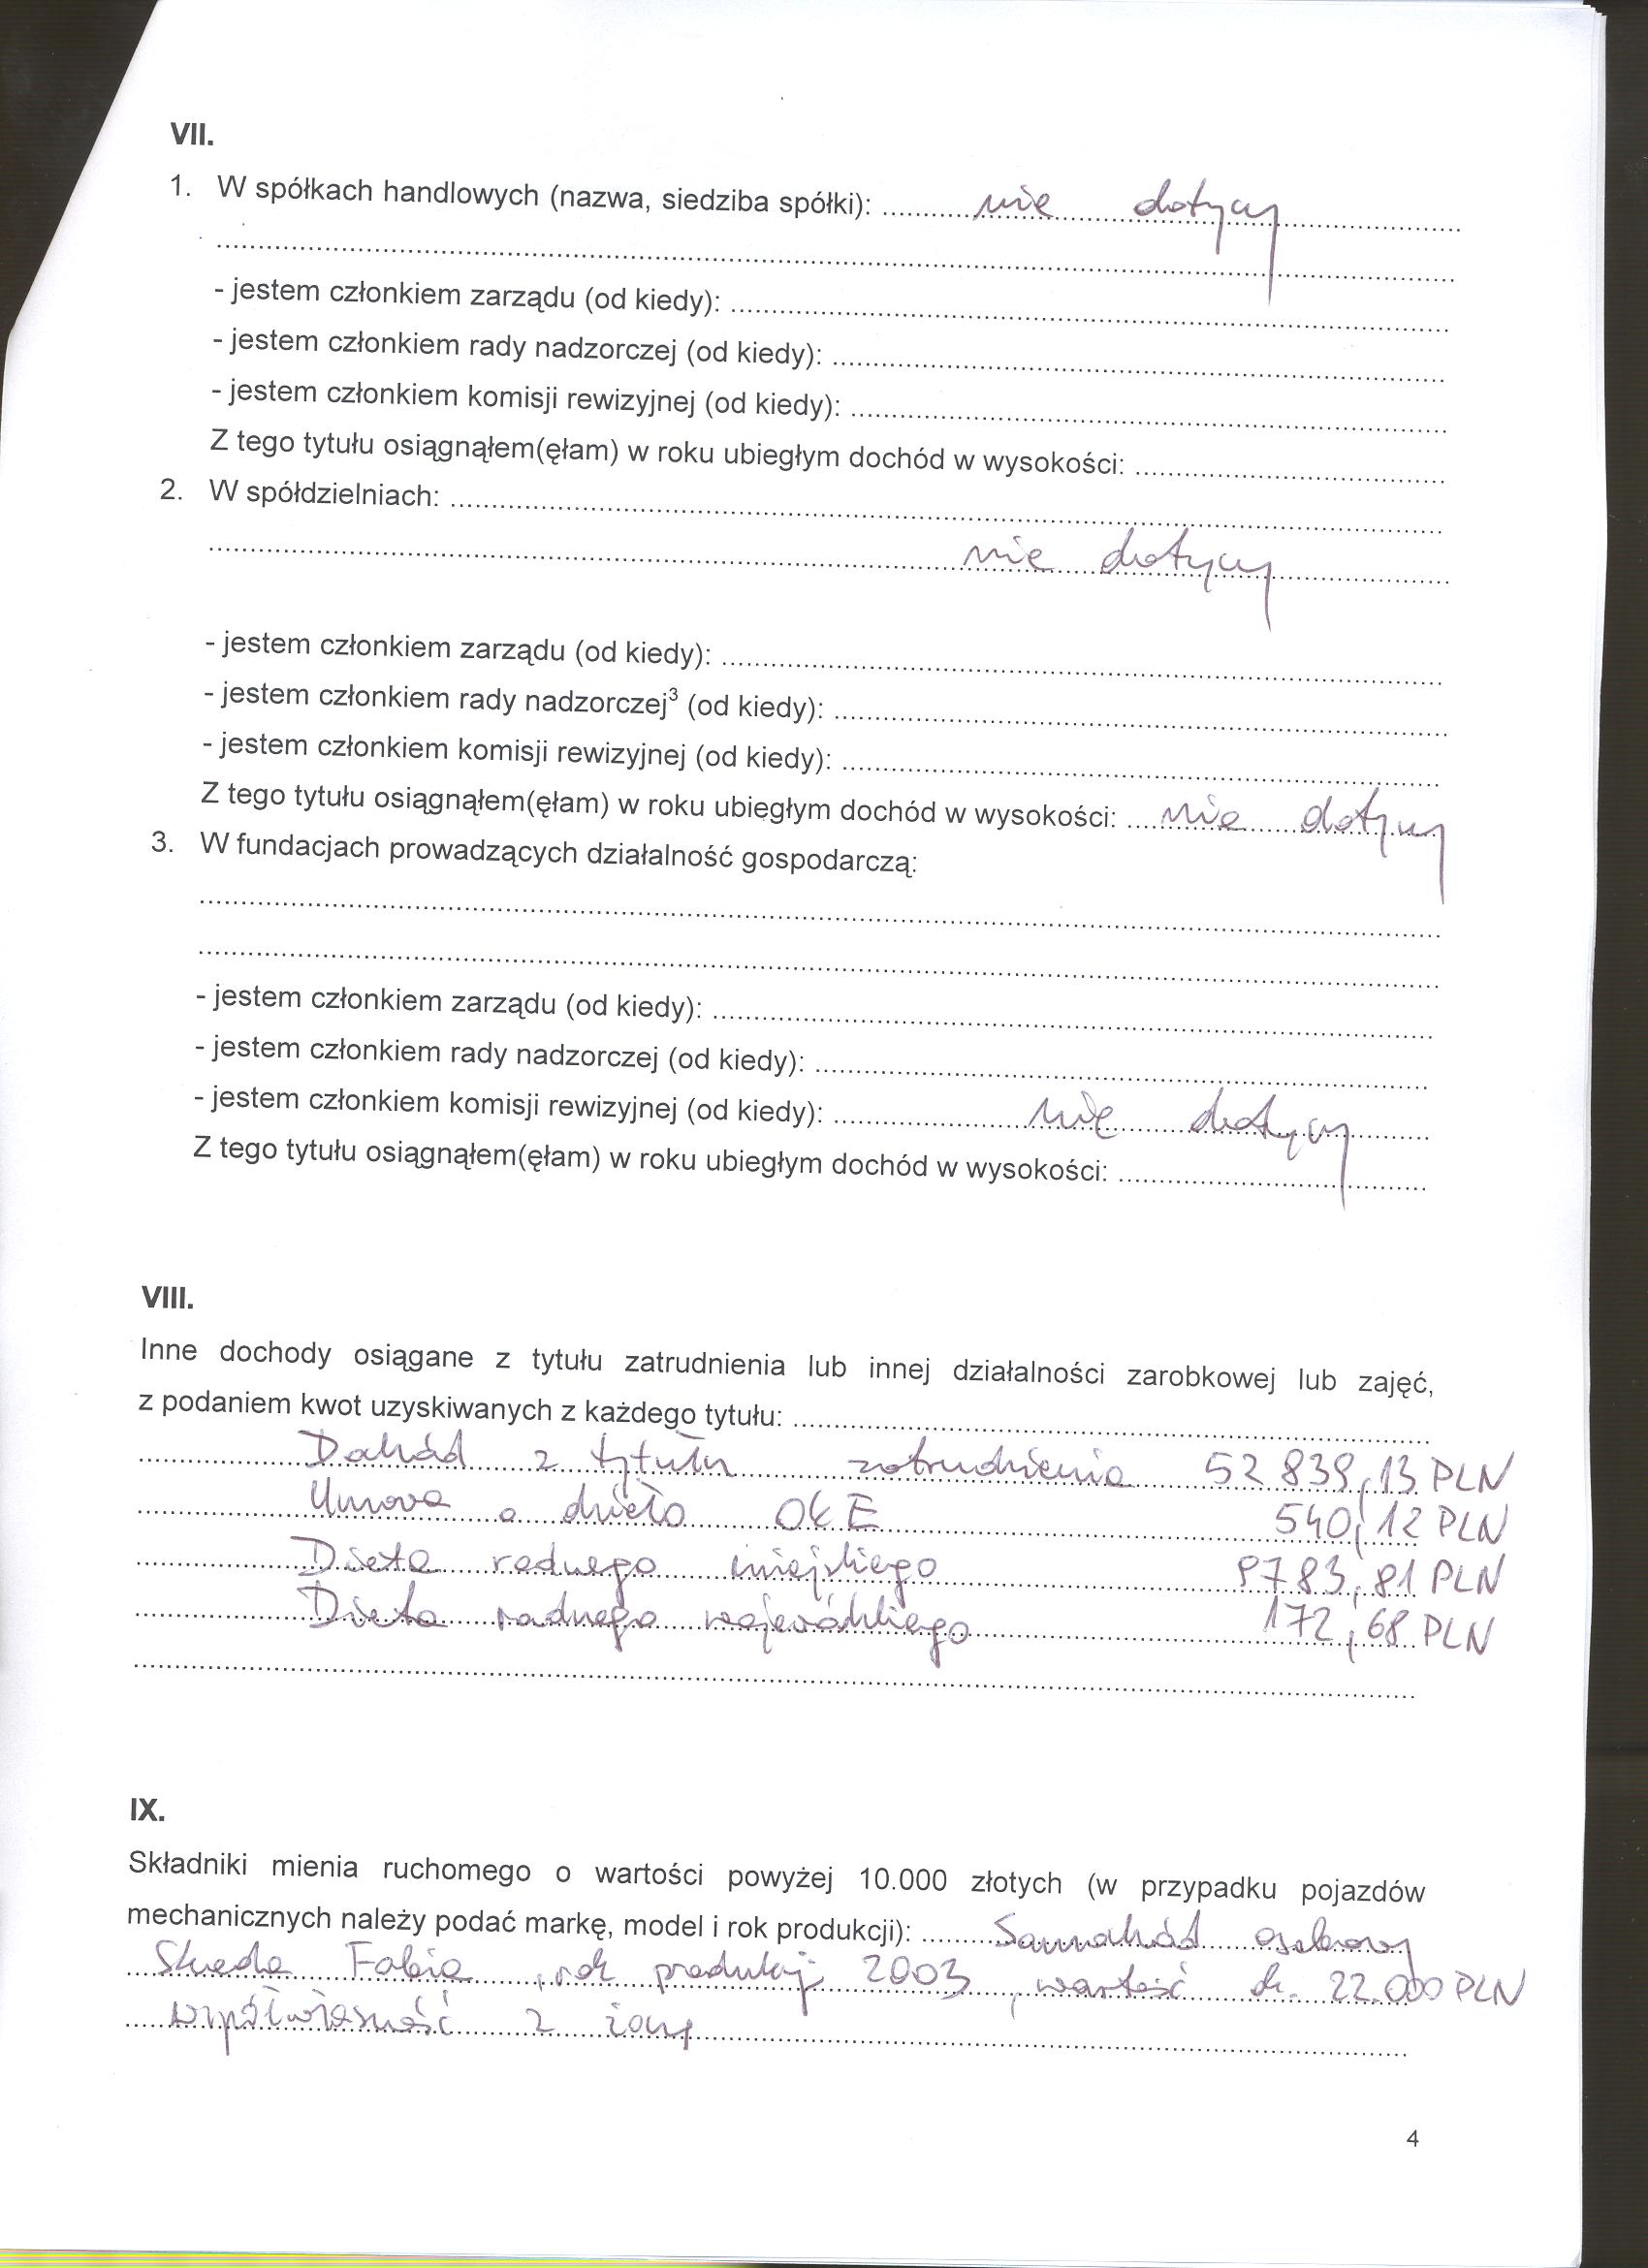 VII.
1. W spółkach handlowych (nazwa, siedziba spółki): .......... nie dotyczy
- jestem członkiem zarządu (od kiedy): ..........
- jestem członkiem rady nadzorczej (od kiedy): ..........
- jestem członkiem komisji rewizyjnej (od kiedy): ..........
Z tego tytułu osiągnąłem(ęłam) w roku ubiegłym dochód w wysokości: ..........
2. W spółdzielniach: ..........
.......... nie dotyczy
- jestem członkiem zarządu (od kiedy): ..........
- jestem członkiem rady nadzorczej³ (od kiedy): ..........
- jestem członkiem komisji rewizyjnej (od kiedy): ..........
Z tego tytułu osiągnąłem(ęłam) w roku ubiegłym dochód w wysokości: .... nie dotyczy
3. W fundacjach prowadzących działalność gospodarczą:
- jestem członkiem zarządu (od kiedy): ..........
- jestem członkiem rady nadzorczej (od kiedy): ..........
- jestem członkiem komisji rewizyjnej (od kiedy): .......... nie dotyczy
Z tego tytułu osiągnąłem(ęłam) w roku ubiegłym dochód w wysokości: ..........
VIII.
Inne dochody osiągane z tytułu zatrudnienia lub innej działalności zarobkowej lub zajęć,
z podaniem kwot uzyskiwanych z każdego tytułu: ..........
Dochód z tytułu zatrudnienia 52 839,13 PLN
Umowa o dzieło OKE 540,12 PLN
Dieta radnego miejskiego 8783,81 PLN
Dieta radnego wojewódzkiego 172,68 PLN
IX.
Składniki mienia ruchomego o wartości powyżej 10.000 złotych (w przypadku pojazdów
mechanicznych należy podać markę, model i rok produkcji): .......... Samochód osobowy
Skoda Fabia, rok produkcji 2003, wartość ok. 22.000 PLN
współwłasność z żoną
4